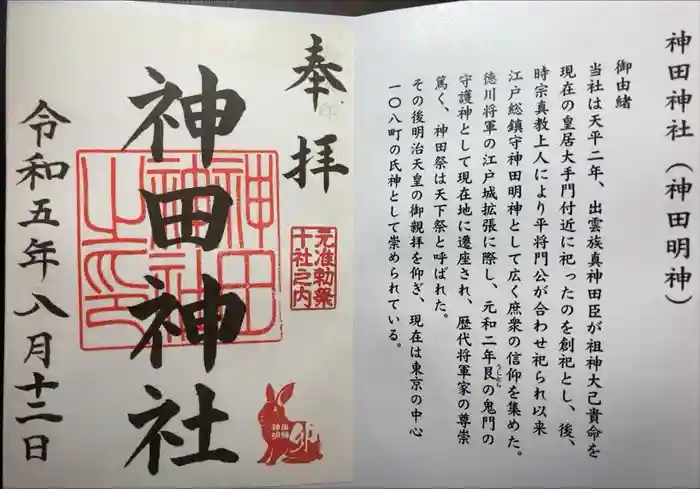 神田神社（神田明神）
御由緒
当社は天平二年、出雲族真神田臣が祖神大己貴命を
現在の皇居大手門付近に祀ったのを創祀とし、後、
時宗真教上人により平将門公が合わせ祀られ以来
江戸総鎮守神田明神として広く庶衆の信仰を集めた。
徳川将軍の江戸城拡張に際し、元和二年艮の鬼門の
うしとら
守護神として現在地に遷座され、歴代将軍家の尊崇
篤く、神田祭は天下祭と呼ばれた。
その後明治天皇の御親拝を仰ぎ、現在は東京の中心
一〇八町の氏神として崇められている。
奉拝
元准勅祭
十社之内
神田神社
神田
神社
之印
卯
神田
明神
令和五年八月十二日